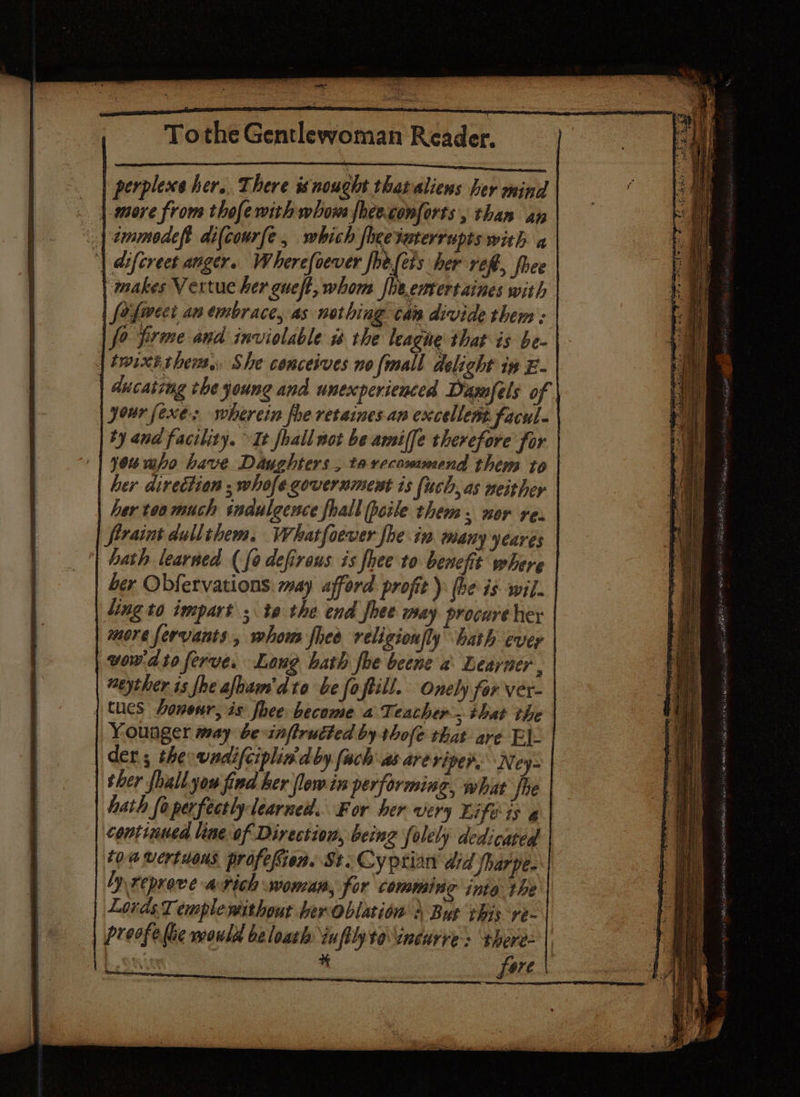 To the Gentlewoman Reader.
perplexe her. There is nought that aliens her mind
more from those with whom shee conforts, than an
immodest discourse, which shee interrupts with a
discreet anger. Wheresoever she sets her rest, shee
makes Vertue her guest, whom she entertaines with
so sweet an embrace, as nothing can divide them:
so firme and inviolable is the league that is be-
twixt them. She conceives no small delight in E-
ducating the young and unexperienced Damsels of
your sexe: wherein she retaines an excellent facul-
ty and facility. It shall not be amisse therefore for
you who have Daughters, to recommend them to
her direction; whose government is such, as neither
her too much indulgence shall spoile them, nor re-
straint dull them. Whatsoever she in many yeares
hath learned (so desirous is shee to benefit where
her Observations may afford profit) she is wil-
ling to impart; to the end shee may procure her
more servants, whom shee religiously hath ever
vow'd to serve. Long hath she beene a Learner,
neyther is she asham'd to be so still. Onely for ver-
tues honour, is shee become a Teacher; that the
Younger may be instructed by those that are El-
der; the undisciplin'd by such as are riper. Ney-
ther shall you find her slow in performing, what she
hath so perfectly learned. For her very Life is a
continued line of Direction, being solely dedicated
to a vertuous profession. St. Cyprian did sharpe-
ly reprove a rich woman, for comming into the
Lords Temple without her Oblation: But this re-
proofe she would be loath justly to incurre: there-
* fore